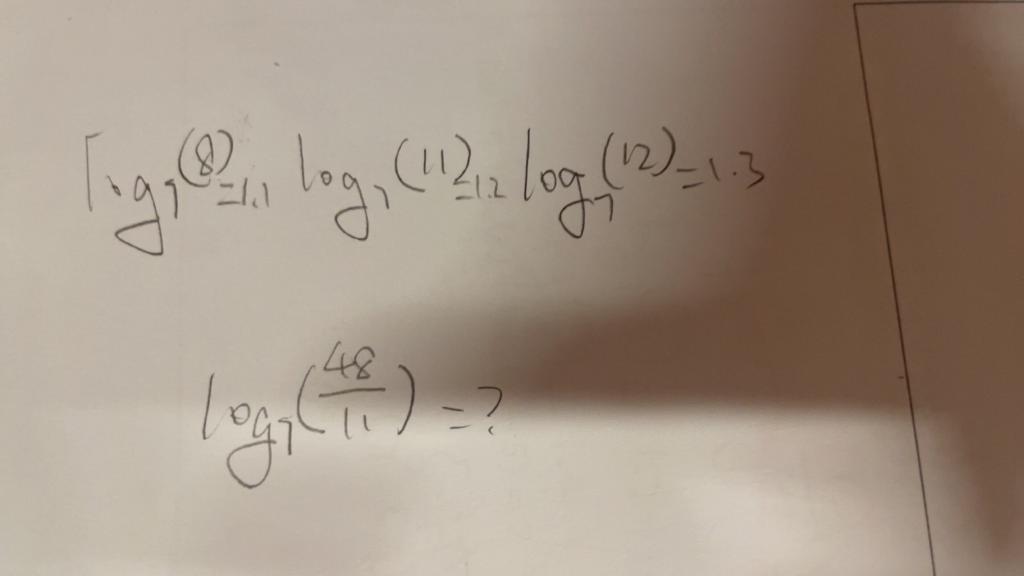 log₇(8)=1.1 log₇(11)=1.2 log₇(12)=1.3
log₇(48/11)=?